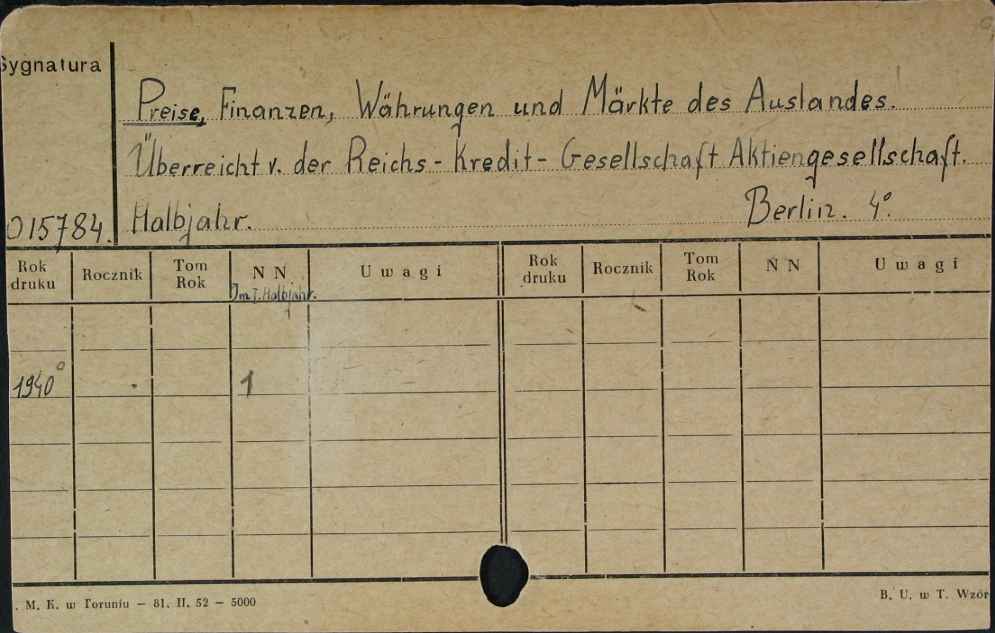 Sygnatura
Preise, Finanzen, Währungen und Märkte des Auslandes.
Überreicht v. der Reichs-Kredit-Gesellschaft Aktiengesellschaft.
015784. Halbjahr. Berlin. 4°.
Rok druku Rocznik Tom Rok N N Uwagi Rok druku Rocznik Tom Rok N N Uwagi
Im I. Halbjahr.
1940° 1
. M. K. w Toruniu – 81. II. 52 – 5000 B. U. w T. Wzór